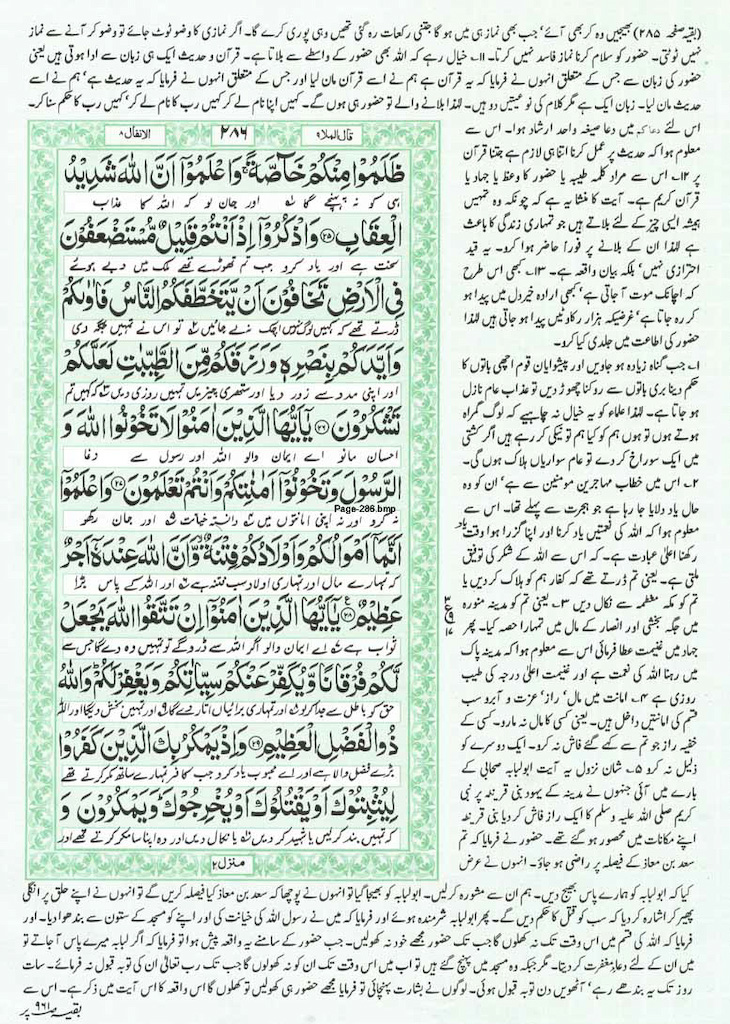 (بقیہ صفحہ ۲۸۵) بھیجیں وہ کر بھی آئے، جب بھی نماز ہی میں ہو گا جتنی رکعات رہ گئی تھیں وہی پوری کرے گا۔ اگر نمازی کا وضو ٹوٹ جائے تو وضو کر آنے سے نماز
نہیں ٹوٹتی۔ حضور کو سلام کرنا نماز فاسد نہیں کرتا۔ ۱۱۔ خیال رہے کہ اللہ بھی حضور کے واسطے سے بلاتا ہے۔ قرآن و حدیث ایک ہی زبان سے ادا ہوتی ہیں یعنی
حضور کی زبان سے جس کے متعلق انہوں نے فرمایا کہ یہ قرآن ہے ہم نے اسے قرآن مان لیا اور جس کے متعلق انہوں نے فرمایا کہ یہ حدیث ہے، ہم نے اسے
حدیث مان لیا۔ زبان ایک ہے مگر کلام کی نوعیتیں دو ہیں۔ لہٰذا بلانے والے تو حضور ہی ہوں گے۔ کہیں اپنا نام لے کر کہیں رب کا نام لے کر، کہیں رب کا حکم سنا کر۔
اس لئے دعاکم میں دعا صیغہ واحد ارشاد ہوا۔ اس سے
معلوم ہوا کہ حدیث پر عمل کرنا اتنا ہی لازم ہے جتنا قرآن
پر ۱۲۔ اس سے مراد کلمہ طیبہ یا حضور کا وعظ یا جہاد یا
قرآن کریم ہے۔ آیت کا منشا یہ ہے کہ چونکہ وہ تمہیں
ہمیشہ ایسی چیز کے لئے بلاتے ہیں جو تمہاری زندگی کا باعث
ہے لہٰذا ان کے بلانے پر فوراً حاضر ہوا کرو۔ یہ قید
احترازی نہیں، بلکہ بیان واقعہ ہے۔ ۱۳۔ کبھی اس طرح
کہ اچانک موت آ جاتی ہے، کبھی ارادہ خیر دل میں پیدا ہو
کر رہ جاتا ہے، غرضیکہ ہزار رکاوٹیں پیدا ہو جاتی ہیں لہٰذا
حضور کی اطاعت میں جلدی کیا کرو۔
۱۔ جب گناہ زیادہ ہو جاویں اور پیشوایان قوم اچھی باتوں کا
حکم دینا بری باتوں سے روکنا چھوڑ دیں تو عذاب عام نازل
ہو جاتا ہے۔ لہٰذا علماء کو یہ خیال نہ چاہیے کہ لوگ گمراہ
ہوتے ہوں تو ہوں ہم کو کیا ہم تو نیکی کر رہے ہیں اگر کشتی
میں ایک سوراخ کر دے تو عام سواریاں ہلاک ہوں گی۔
۲۔ اس میں خطاب مہاجرین مومنین سے ہے، ان کو وہ
حال یاد دلایا جا رہا ہے جو ہجرت سے پہلے تھا۔ اس سے
معلوم ہوا کہ اللہ کی نعمتیں یاد کرنا اور اپنا گزرا ہوا وقت یاد
رکھنا اعلیٰ عبادت ہے۔ کہ اس سے اللہ کے شکر کی توفیق
ملتی ہے۔ یعنی تم ڈرتے تھے کہ کفار ہم کو ہلاک کر دیں یا
تم کو مکہ معظمہ سے نکال دیں ۳۔ یعنی تم کو مدینہ منورہ
میں جگہ بخشی اور انصار کے مال میں تمہارا حصہ کیا۔ پھر
جہاد میں غنیمت عطا فرمائی اس سے معلوم ہوا کہ مدینہ پاک
میں رہنا اللہ کی نعمت ہے اور غنیمت اعلیٰ درجہ کی طیب
روزی ہے ۴۔ امانت میں مال، راز، عزت و آبرو سب
قسم کی امانتیں داخل ہیں۔ یعنی کسی کا مال نہ مارو۔ کسی کے
خفیہ راز جو تم سے کہے گئے فاش نہ کرو۔ ایک دوسرے کو
ذلیل نہ کرو ۵۔ شان نزول یہ آیت ابولبابہ صحابی کے
بارے میں آئی جنہوں نے مدینہ کے یہود بنی قریظہ پر نبی
کریم صلی اللہ علیہ وسلم کا ایک راز فاش کر دیا بنی قریظہ
اپنے مکانات میں محصور ہو گئے تھے۔ حضور نے فرمایا کہ تم
سعد بن معاذ کے فیصلہ پر راضی ہو جاؤ۔ انہوں نے عرض
ع
۱۷
قال الملا۹
۲۸۶
الانفال۸
ظَلَمُوْا مِنْكُمْ خَآصَّةً ۚ وَاعْلَمُوْۤا اَنَّ اللّٰهَ شَدِيْدُ
ہی کو نہ پہنچے گا اور جان لو کہ اللہ کا عذاب
الْعِقَابِ ﴿۲۵﴾ وَاذْكُرُوْۤا اِذْ اَنْتُمْ قَلِيْلٌ مُّسْتَضْعَفُوْنَ
سخت ہے اور یاد کرو جب تم تھوڑے تھے ملک میں دبے ہوئے
فِى الْاَرْضِ تَخَافُوْنَ اَنْ يَّتَخَطَّفَكُمُ النَّاسُ فَاٰوٰىكُمْ
ڈرتے تھے کہ کہیں لوگ تمہیں اچک نہ لے جائیں تو اس نے تمہیں جگہ دی
وَاَيَّدَكُمْ بِنَصْرِهٖ وَرَزَقَكُمْ مِّنَ الطَّيِّبٰتِ لَعَلَّكُمْ
اور اپنی مدد سے زور دیا اور ستھری چیزیں تمہیں روزی دیں کہ کہیں تم
تَشْكُرُوْنَ ﴿۲۶﴾ يٰۤاَيُّهَا الَّذِيْنَ اٰمَنُوْا لَا تَخُوْنُوا اللّٰهَ وَ
احسان مانو اے ایمان والو اللہ اور رسول سے دغا
الرَّسُوْلَ وَتَخُوْنُوْۤا اَمٰنٰتِكُمْ وَاَنْتُمْ تَعْلَمُوْنَ ﴿۲۷﴾ وَاعْلَمُوْۤا
Page-286.bmp
نہ کرو اور نہ اپنی امانتوں میں دانستہ خیانت اور جان رکھو
اَنَّمَاۤ اَمْوَالُكُمْ وَاَوْلَادُكُمْ فِتْنَةٌ ۙ وَّاَنَّ اللّٰهَ عِنْدَهٗۤ اَجْرٌ
کہ تمہارے مال اور تمہاری اولاد سب فتنہ ہے اور اللہ کے پاس بڑا
عَظِيْمٌ ﴿۲۸﴾ يٰۤاَيُّهَا الَّذِيْنَ اٰمَنُوْۤا اِنْ تَتَّقُوا اللّٰهَ يَجْعَلْ
ثواب ہے اے ایمان والو اگر اللہ سے ڈرو گے تو تمہیں وہ دے گا جس سے
لَّكُمْ فُرْقَانًا وَّيُكَفِّرْ عَنْكُمْ سَيِّاٰتِكُمْ وَيَغْفِرْ لَكُمْ ؕ وَاللّٰهُ
حق کو باطل سے جدا کر لو اور تمہاری برائیاں اتار دے گا اور تمہیں بخش دیگا اور اللہ
ذُو الْفَضْلِ الْعَظِيْمِ ﴿۲۹﴾ وَاِذْ يَمْكُرُ بِكَ الَّذِيْنَ كَفَرُوْا
بڑے فضل والا ہے اور اے محبوب یاد کرو جب کافر تمہارے ساتھ مکر کرتے تھے
لِيُثْبِتُوْكَ اَوْ يَقْتُلُوْكَ اَوْ يُخْرِجُوْكَ ؕ وَيَمْكُرُوْنَ وَ
کہ تمہیں بند کر لیں یا شہید کر دیں یا نکال دیں اور وہ اپنا سا مکر کرتے تھے اور
منزل۲
کیا کہ ابولبابہ کو ہمارے پاس بھیج دیں۔ ہم ان سے مشورہ کر لیں۔ ابولبابہ کو بھیجا گیا تو انہوں نے پوچھا کہ سعد بن معاذ کیا فیصلہ کریں گے تو انہوں نے اپنے حلق پر انگلی
پھیر کر اشارہ کر دیا کہ سب کو قتل کا حکم دیں گے۔ پھر ابولبابہ شرمندہ ہوئے اور فرمایا کہ میں نے رسول اللہ کی خیانت کی اور اپنے کو مسجد کے ستون سے بندھوا دیا۔ اور
فرمایا کہ اللہ کی قسم میں اس وقت تک نہ کھلوں گا جب تک حضور مجھے خود نہ کھولیں۔ جب حضور کے سامنے یہ واقعہ پیش ہوا تو فرمایا کہ اگر لبابہ میرے پاس آ جاتے تو
میں ان کے لئے دعاء مغفرت کر دیتا۔ مگر جبکہ وہ مسجد میں پہنچ گئے ہیں تو اب میں اس وقت تک ان کو نہ کھولوں گا جب تک رب تعالیٰ ان کی توبہ قبول نہ فرمائے۔ سات
روز تک یہ بندھے رہے، آٹھویں دن توبہ قبول ہوئی۔ لوگوں نے بشارت پہنچائی تو فرمایا مجھے حضور ہی کھولیں تو کھلوں گا اس واقعہ کا اس آیت میں ذکر ہے۔ اس سے
بقیہ ص۹۶۱ پر